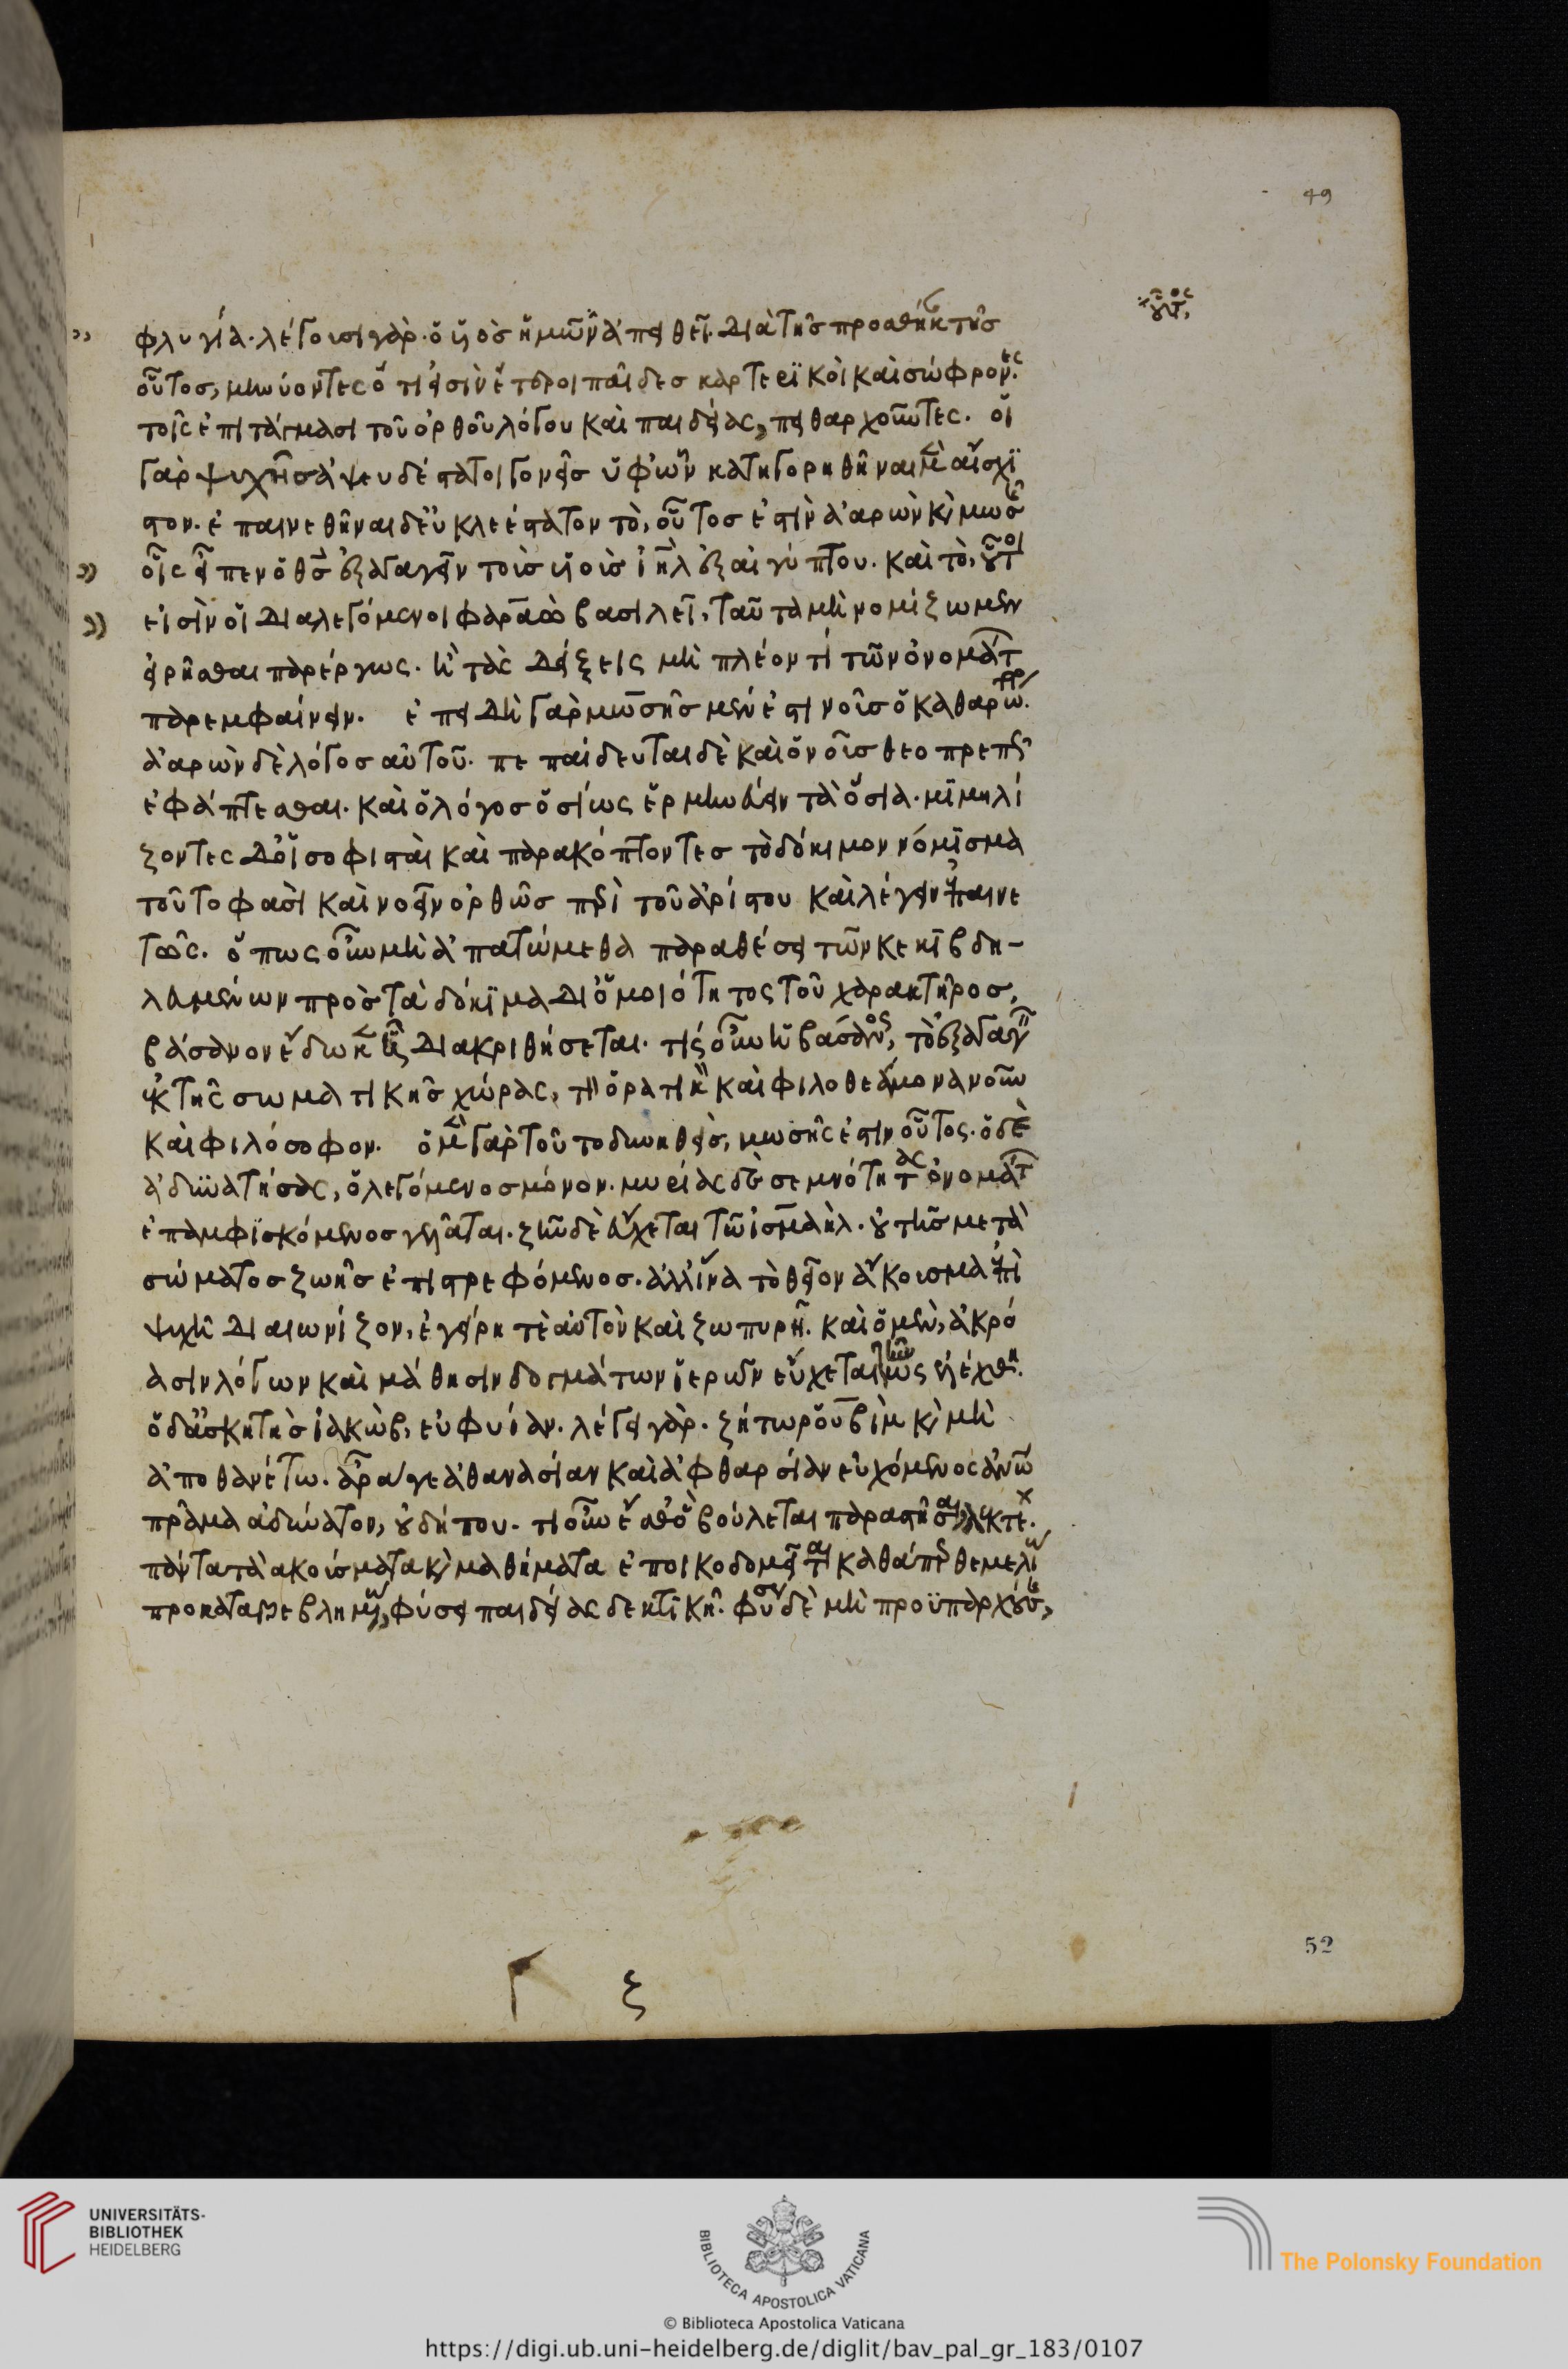 49
φλυγία. λέγουσι γὰρ. ὁ υἱὸς ἡμῶν ἀπειθεῖ. διὰ τῆς προσθήκης τῆς
οὗτος, μηνύοντες ὅτι εἰσὶν ἕτεροι παῖδες καρτερϊκοὶ καὶ σώφρονες.
τοῖς ἐπιτάγμασι τοῦ ὀρθοῦ λόγου καὶ παιδείας, πειθαρχοῦντες. οἱ
γὰρ ψυχῆς ἀψευδέστατοι γονεῖς ὑφ' ὧν κατηγορηθῆναι μὲν αἴσχϊ
στον. ἐπαινεθῆναι δ' εὐκλεέστατον τὸ, οὗτος ἐστὶν ἀαρὼν κ(αὶ) μωσῆς
οἷς εἶπεν ὁ θς ἐξαγαγεῖν τοὺς υἱοὺς ιηλ ἐξ αἰγύπτου. καὶ τὸ, οὗτοι
εἰσὶν οἱ διαλεγόμενοι φαραὼ βασιλεῖ, ταῦτα μὴ νομίζωμεν
εἰρῆσθαι παρέργως. ἢ τὰς δείξεις μὴ πλέον τί τῶν ὀνομάτ
παρεμφαίνειν. ἐπειδὴ γὰρ μωσῆς μέν ἐστι νοῦς ὁ καθαρώ.
ἀαρὼν δὲ λόγος αὐτοῦ. πεπαίδευται δὲ καὶ ὁ νοῦς θεοπρεπῶς
ἐφάπτεσθαι. καὶ ὁ λόγος ὁσίως ἑρμηνεύειν τὰ ὅσια. μϊμηλί
ζοντες δ' οἱ σοφισταὶ καὶ παρακόπτοντες τὸ δόκιμον νόμϊσμα
τοῦτο φασὶ καὶ νοεῖν ὀρθῶς περὶ τοῦ ἀρίστου καὶ λέγειν ἐπαινε
τῶς. ὅπως οὖν μὴ ἀπατώμεθα παραθέσει τῶν κεκιβδη-
λευμένων πρὸς τὰ δόκϊμα δι' ὁμοιότητος τοῦ χαρακτῆρος,
βάσανον ἔδωκεν ᾗ διακριθήσεται. τίς οὖν ἡ βάσανος, τὸ ἐξαγαγεῖν
ἐκ τῆς σωματικῆς χώρας, τὴν ὁρατικὴν καὶ φιλοθεάμονα νοῦν
καὶ φιλόσοφον. ὁ μὲν γὰρ τοῦτο δυνηθεὶς, μωσῆς ἐστὶν οὗτος. ὁ δὲ
ἀδυνατήσας, ὁ λεγόμενος μόνον. μυρίας δὲ σεμνότητας ὀνομάτ
ἐπαμφϊσκόμενος γελᾶται. ζῆν δὲ εὔχεται τῶ ἰσμαὴλ. οὐ τῆς μετὰ
σώματος ζωῆς ἐπιστρεφόμενος. ἀλλ' ἵνα τὸ θεῖον ἄκουσμα ἐπὶ
ψυχῆ διαιωνίζον, ἐγείρη τὲ αὐτὸν καὶ ζωπυρῆ. καὶ ὁ μὲν, ἀκρό
ασιν λόγων καὶ μάθησιν δογμάτων ἱερῶν εὔχεται
ὁ δ' ἀσκητὴς ἰακὼβ, εὐφυίαν. λέγει γὰρ. ζήτω ῥουβὶμ κ(αὶ) μὴ
ἀποθανέτω. ἆρα γε ἀθανασίαν καὶ ἀφθαρσίαν εὐχόμενος ἀνω
πρᾶγμα ἀδύνατον, οὐ δήπου. τί οὖν ἔσθ' ὃ βούλεται παραστῆσαι, λεκτέ.
πάντα τὰ ἀκούσματα κ(αὶ) μαθήματα ἐποικοδομεῖται καθάπερ θεμελί
προκαταβεβλημένω, φύσει παιδείας δεκτϊκῆ. φύσεως δὲ μὴ προϋπαρχούσης,
ξ
52
UNIVERSITÄTS-
BIBLIOTHEK
HEIDELBERG
BIBLIOTECA APOSTOLICA VATICANA
© Biblioteca Apostolica Vaticana
The Polonsky Foundation
https://digi.ub.uni-heidelberg.de/diglit/bav_pal_gr_183/0107